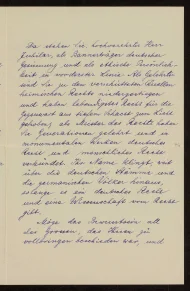 Da stehen Sie hochverehrter Herr
Jubilar, als Bannerträger deutscher
Gesinnung und als ethische Persönlich-
keit in vorderster Linie. Als Gelehrter
sind Sie zu den verschütteten Quellen
heimischen Rechts niedergestiegen
und haben lebendigstes Recht für die
Gegenwart aus tiefem Schacht zum Licht
gehoben, als Meister des Rechts haben
Sie Generationen gelehrt und in
monumentalen Werken deutsches
Recht und menschliches Recht
verkündet. Ihr Name klingt weit
über die deutschen Stämme und
die germanischen Völker hinaus,
solange es ein deutsches Recht
und eine Wissenschaft vom Recht
gibt.
Möge das Bewusstsein all
des Grossen, das Ihnen zu
vollbringen beschieden war, und